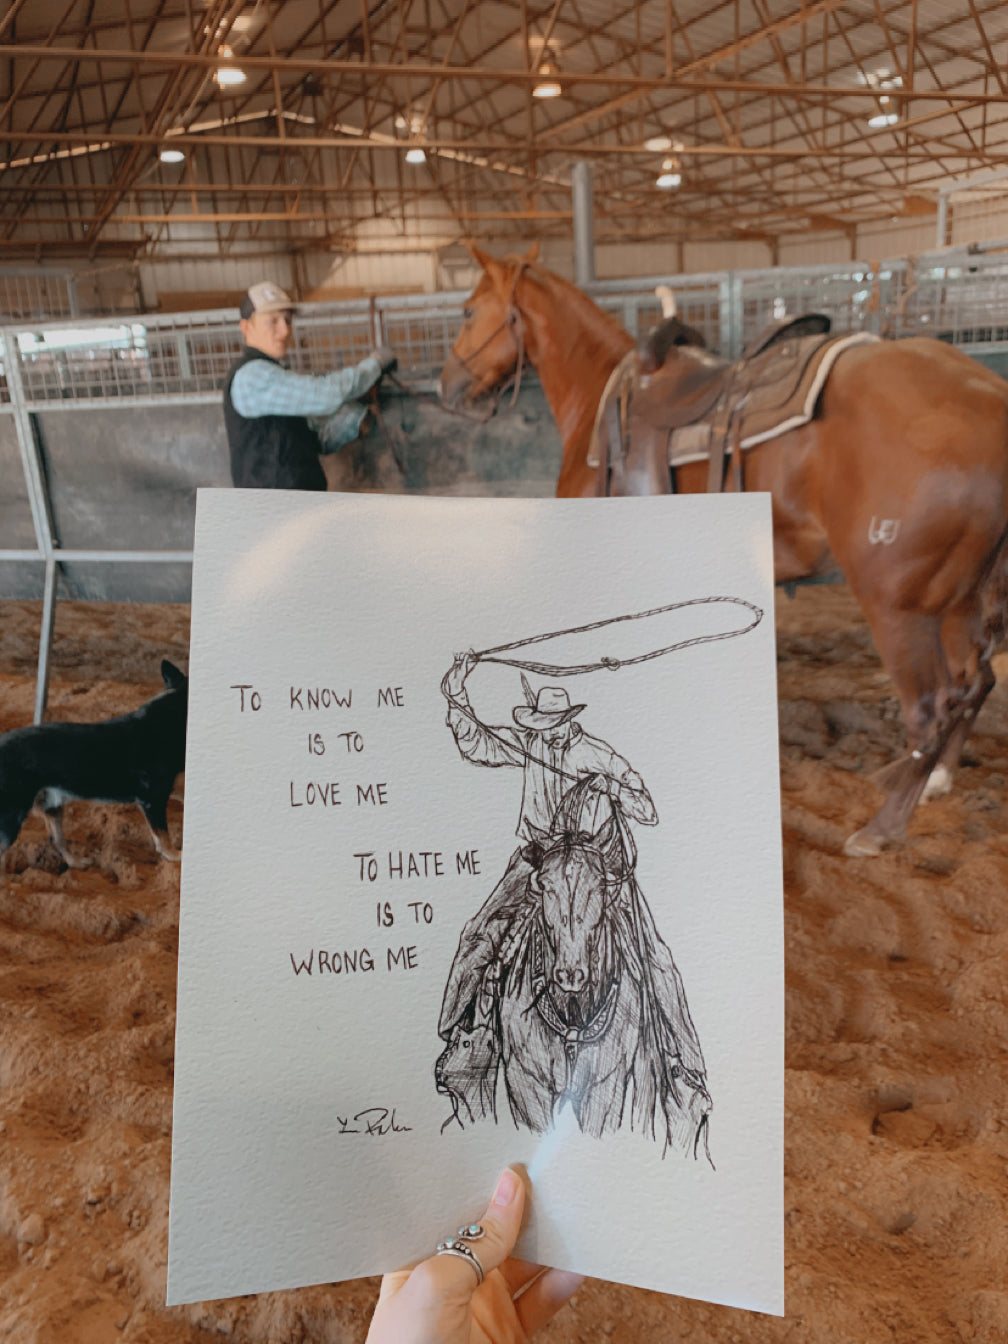 TO KNOW ME
IS TO
LOVE ME
TO HATE ME
IS TO
WRONG ME